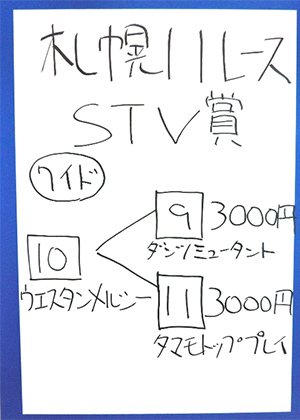 札幌11レース
STV賞
ワイド
9 3000円
ダンツミュータント
10
ウエスタンメルシー
11 3000円
タマモトッププレイ